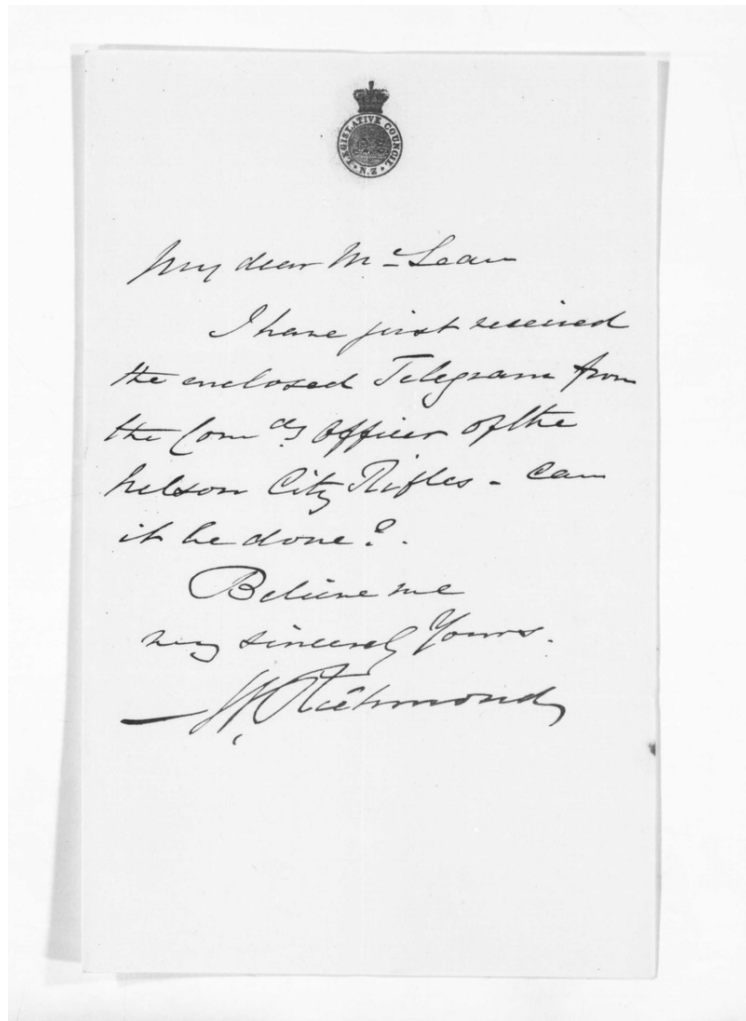 LEGISLATIVE COUNCIL
N.Z
My dear McLean
I have just received
the enclosed Telegram from
the Comdg Officer of the
Nelson City Rifles - Can
it be done?.
Believe me
very sincerely Yours.
Richmond